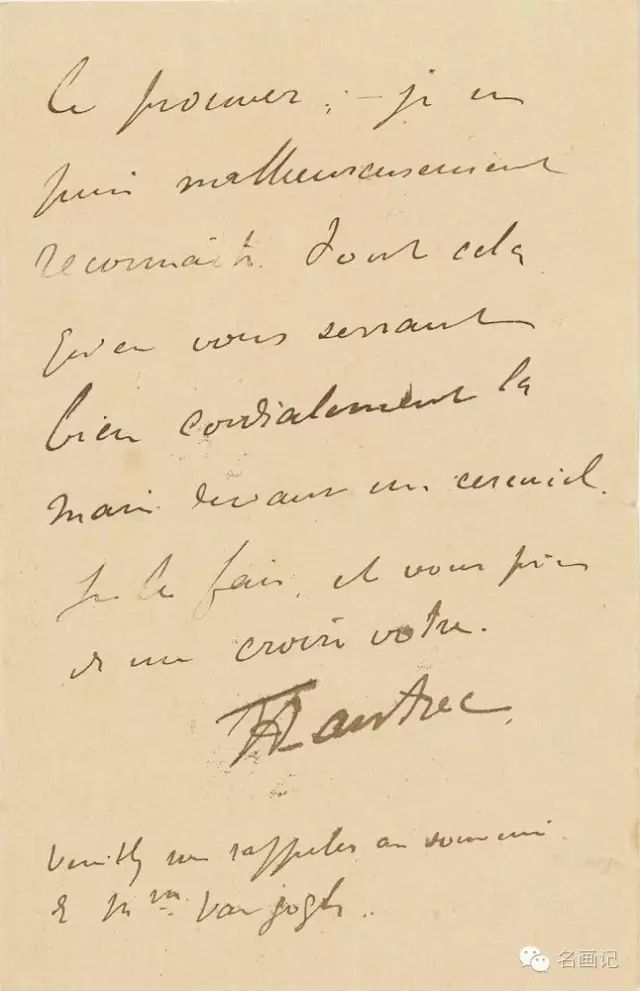 le prouver ; – je ne
puis malheureusement
reconnaitre. tout cela
qu'en vous serrant
bien cordialement la
main devant un cercueil.
Je le fais, et vous prie
de me croire votre.
HTLautrec.
Veuillez me rappeler au souvenir
de Mme Van gogh..
名画记